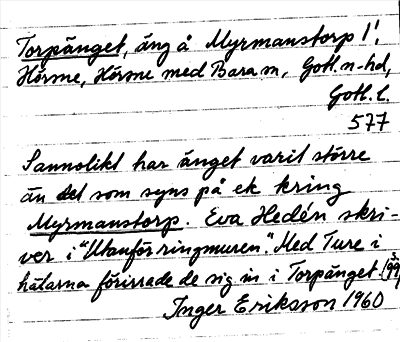 Torpänget, äng å Myrmanstorp 1!
Hörsne, Hörsne med Bara sn, Gotl. n-hd,
Gotl. l.
577
Sannolikt har änget varit större
än det som syns på ek kring
Myrmanstorp. Eva Hedén skri-
ver i "Utanför ringmuren". Med Ture i
hälarna förirrade de sig in i Torpänget.
Inger Eriksson 1960